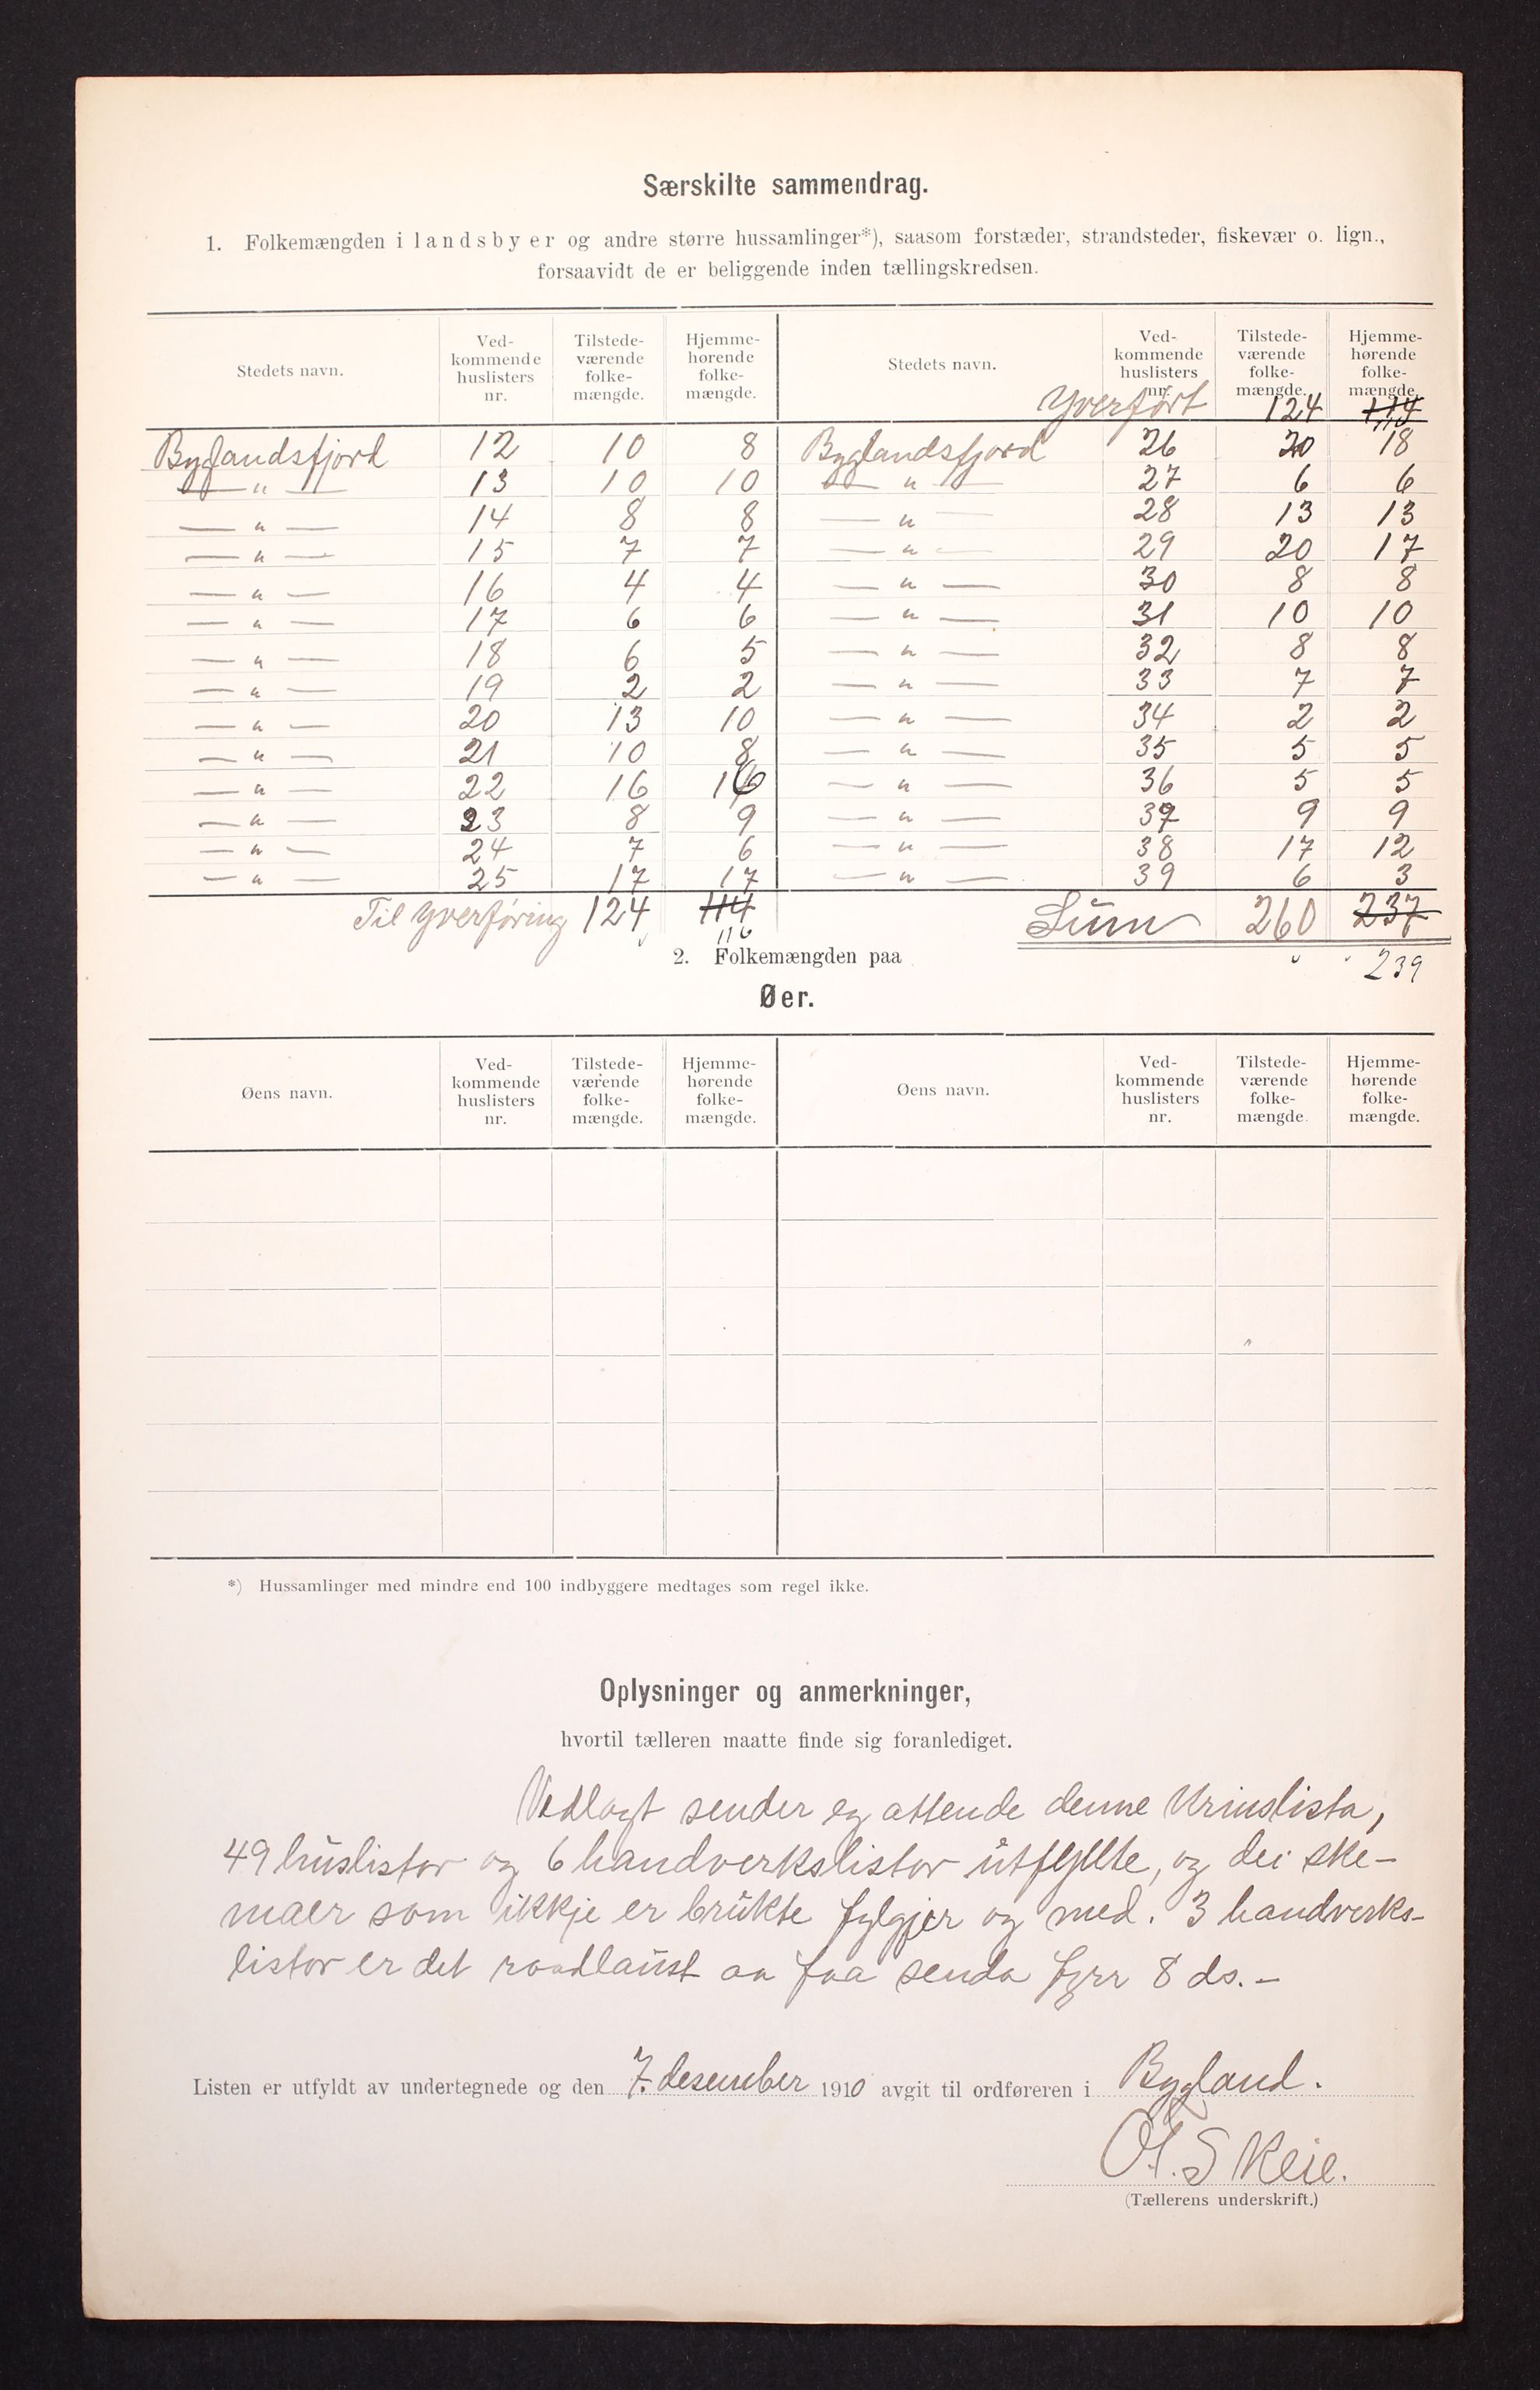 Særskilte sammendrag.
1. Folkemængden i landsbyer og andre større hussamlinger*), saasom forstæder, strandsteder, fiskevær o. lign.,
forsaavidt de er beliggende inden tællingskredsen.
Stedets navn. Ved-kommende huslisters nr. Tilstede-værende folke-mængde. Hjemme-hørende folke-mængde. Stedets navn. Ved-kommende huslisters nr. Tilstede-værende folke-mængde. Hjemme-hørende folke-mængde.
Yverført 124 114 116
Byglandsfjord 12 10 8 Byglandsfjord 26 20 18
— " — 13 10 10 — " — 27 6 6
— " — 14 8 8 — " — 28 13 13
— " — 15 7 7 — " — 29 20 17
— " — 16 4 4 — " — 30 8 8
— " — 17 6 6 — " — 31 10 10
— " — 18 6 5 — " — 32 8 8
— " — 19 2 2 — " — 33 7 7
— " — 20 13 10 — " — 34 2 2
— " — 21 10 8 — " — 35 5 5
— " — 22 16 16 — " — 36 5 5
— " — 23 8 9 — " — 37 9 9
— " — 24 7 6 — " — 38 17 12
— " — 25 17 17 — " — 39 6 3
Til yverføring 124 114 Sum 260 237
116 239
2. Folkemængden paa
Øer.
Øens navn. Ved-kommende huslisters nr. Tilstede-værende folke-mængde. Hjemme-hørende folke-mængde. Øens navn. Ved-kommende huslisters nr. Tilstede-værende folke-mængde. Hjemme-hørende folke-mængde.
*) Hussamlinger med mindre end 100 indbyggere medtages som regel ikke.
Oplysninger og anmerkninger,
hvortil tælleren maatte finde sig foranlediget.
Vedlagt sender eg attende denne Krinslista,
49 huslistor og 6 handverkslistor utfyllte, og dei ske-
maer som ikkje er brukte fylgjer og med. 3 handverks-
listor er det raadlaust aa faa senda fyrr 8 ds. –
Listen er utfyldt av undertegnede og den 7. desember 1910 avgit til ordføreren i Bygland.
Ol. S Keie.
(Tællerens underskrift.)